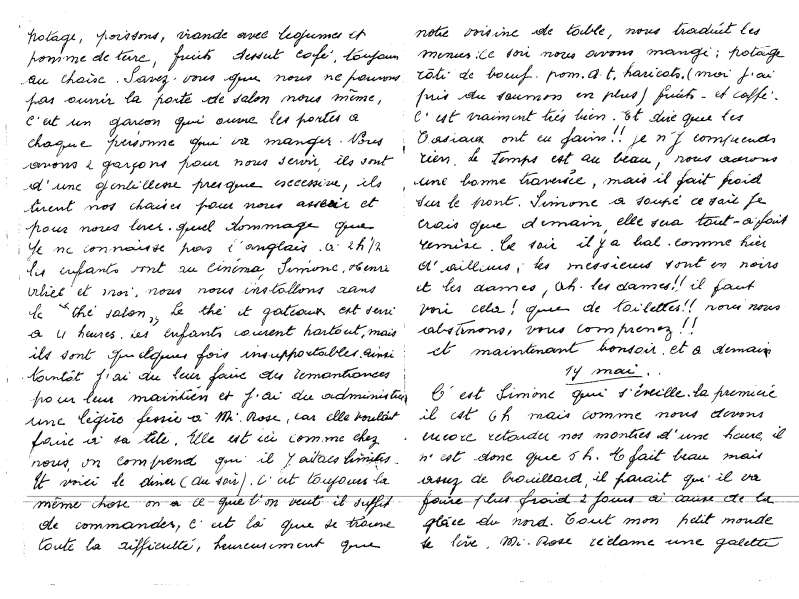 potage, poissons, viande avec legumes et
pomme de terre, fruits dessert café, toujours
au choix. Savez-vous que nous ne pouvons
pas ouvrir la porte de salon nous même,
c'est un garçon qui ouvre les portes a
chaque personne qui va manger. Nous
avons 2 garçons pour nous servir, ils sont
d'une gentillesse presque excessive, ils
tirent nos chaises pour nous asseoir et
pour nous lever. quel dommage que
je ne connaisse pas l'anglais. a 2h1/2
les enfants vont au cinéma, Simone, Henri
et moi, nous nous installons dans
le "thé salon", Le thé et gateaux est servi
a 4 heures. Les enfants courent partout, mais
ils sont quelques fois insupportables. ainsi
tantôt j'ai du leur faire des remontrances
pour leur maintien et j'ai du administrer
une légère fessée à Mi. Rose, car elle voulait
faire à sa tête. Elle est ici comme chez
nous, on comprend qu'il y a des limites.
Et voici le diner (du soir). C'est toujours la
même chose on a ce que l'on veut il suffit
de commander, c'est là que se trouve
toute la difficulté, heureusement que
notre voisine de table, nous traduit les
menus. Ce soir nous avons mangé; potage
rôti de bœuf. pom. d. t, haricots, (moi j'ai
pris du saumon en plus) fruits - et caffé.
C'est vraiment très bien. Et dire que les
ont eu faim!! je n'y comprends
rien. Le Temps est au beau, nous avons
une bonne traversée, mais il fait froid
sur le pont. Simone a soupé ce soir. Je
crois que demain, elle sera tout-à-fait
remise. Ce soir il y a bal. comme hier
d'ailleurs; les messieurs sont en noirs
et les dames, Ah. les dames!! il faut
voir cela! que de toilettes!! nous nous
abstenons, vous comprenez!!
et maintenant bonsoir. et a demain
14 mai...
C'est Simone qui s'éveille. la première
il est 6h mais comme nous devons
encore retarder nos montres d'une heure, il
n'est donc que 5h. Il fait beau mais
assez de brouillard, il parait qu'il va
faire plus froid 2 jours à cause de la
glâce du nord. Tout mon petit monde
se lève, Mi. Rose réclame une galette